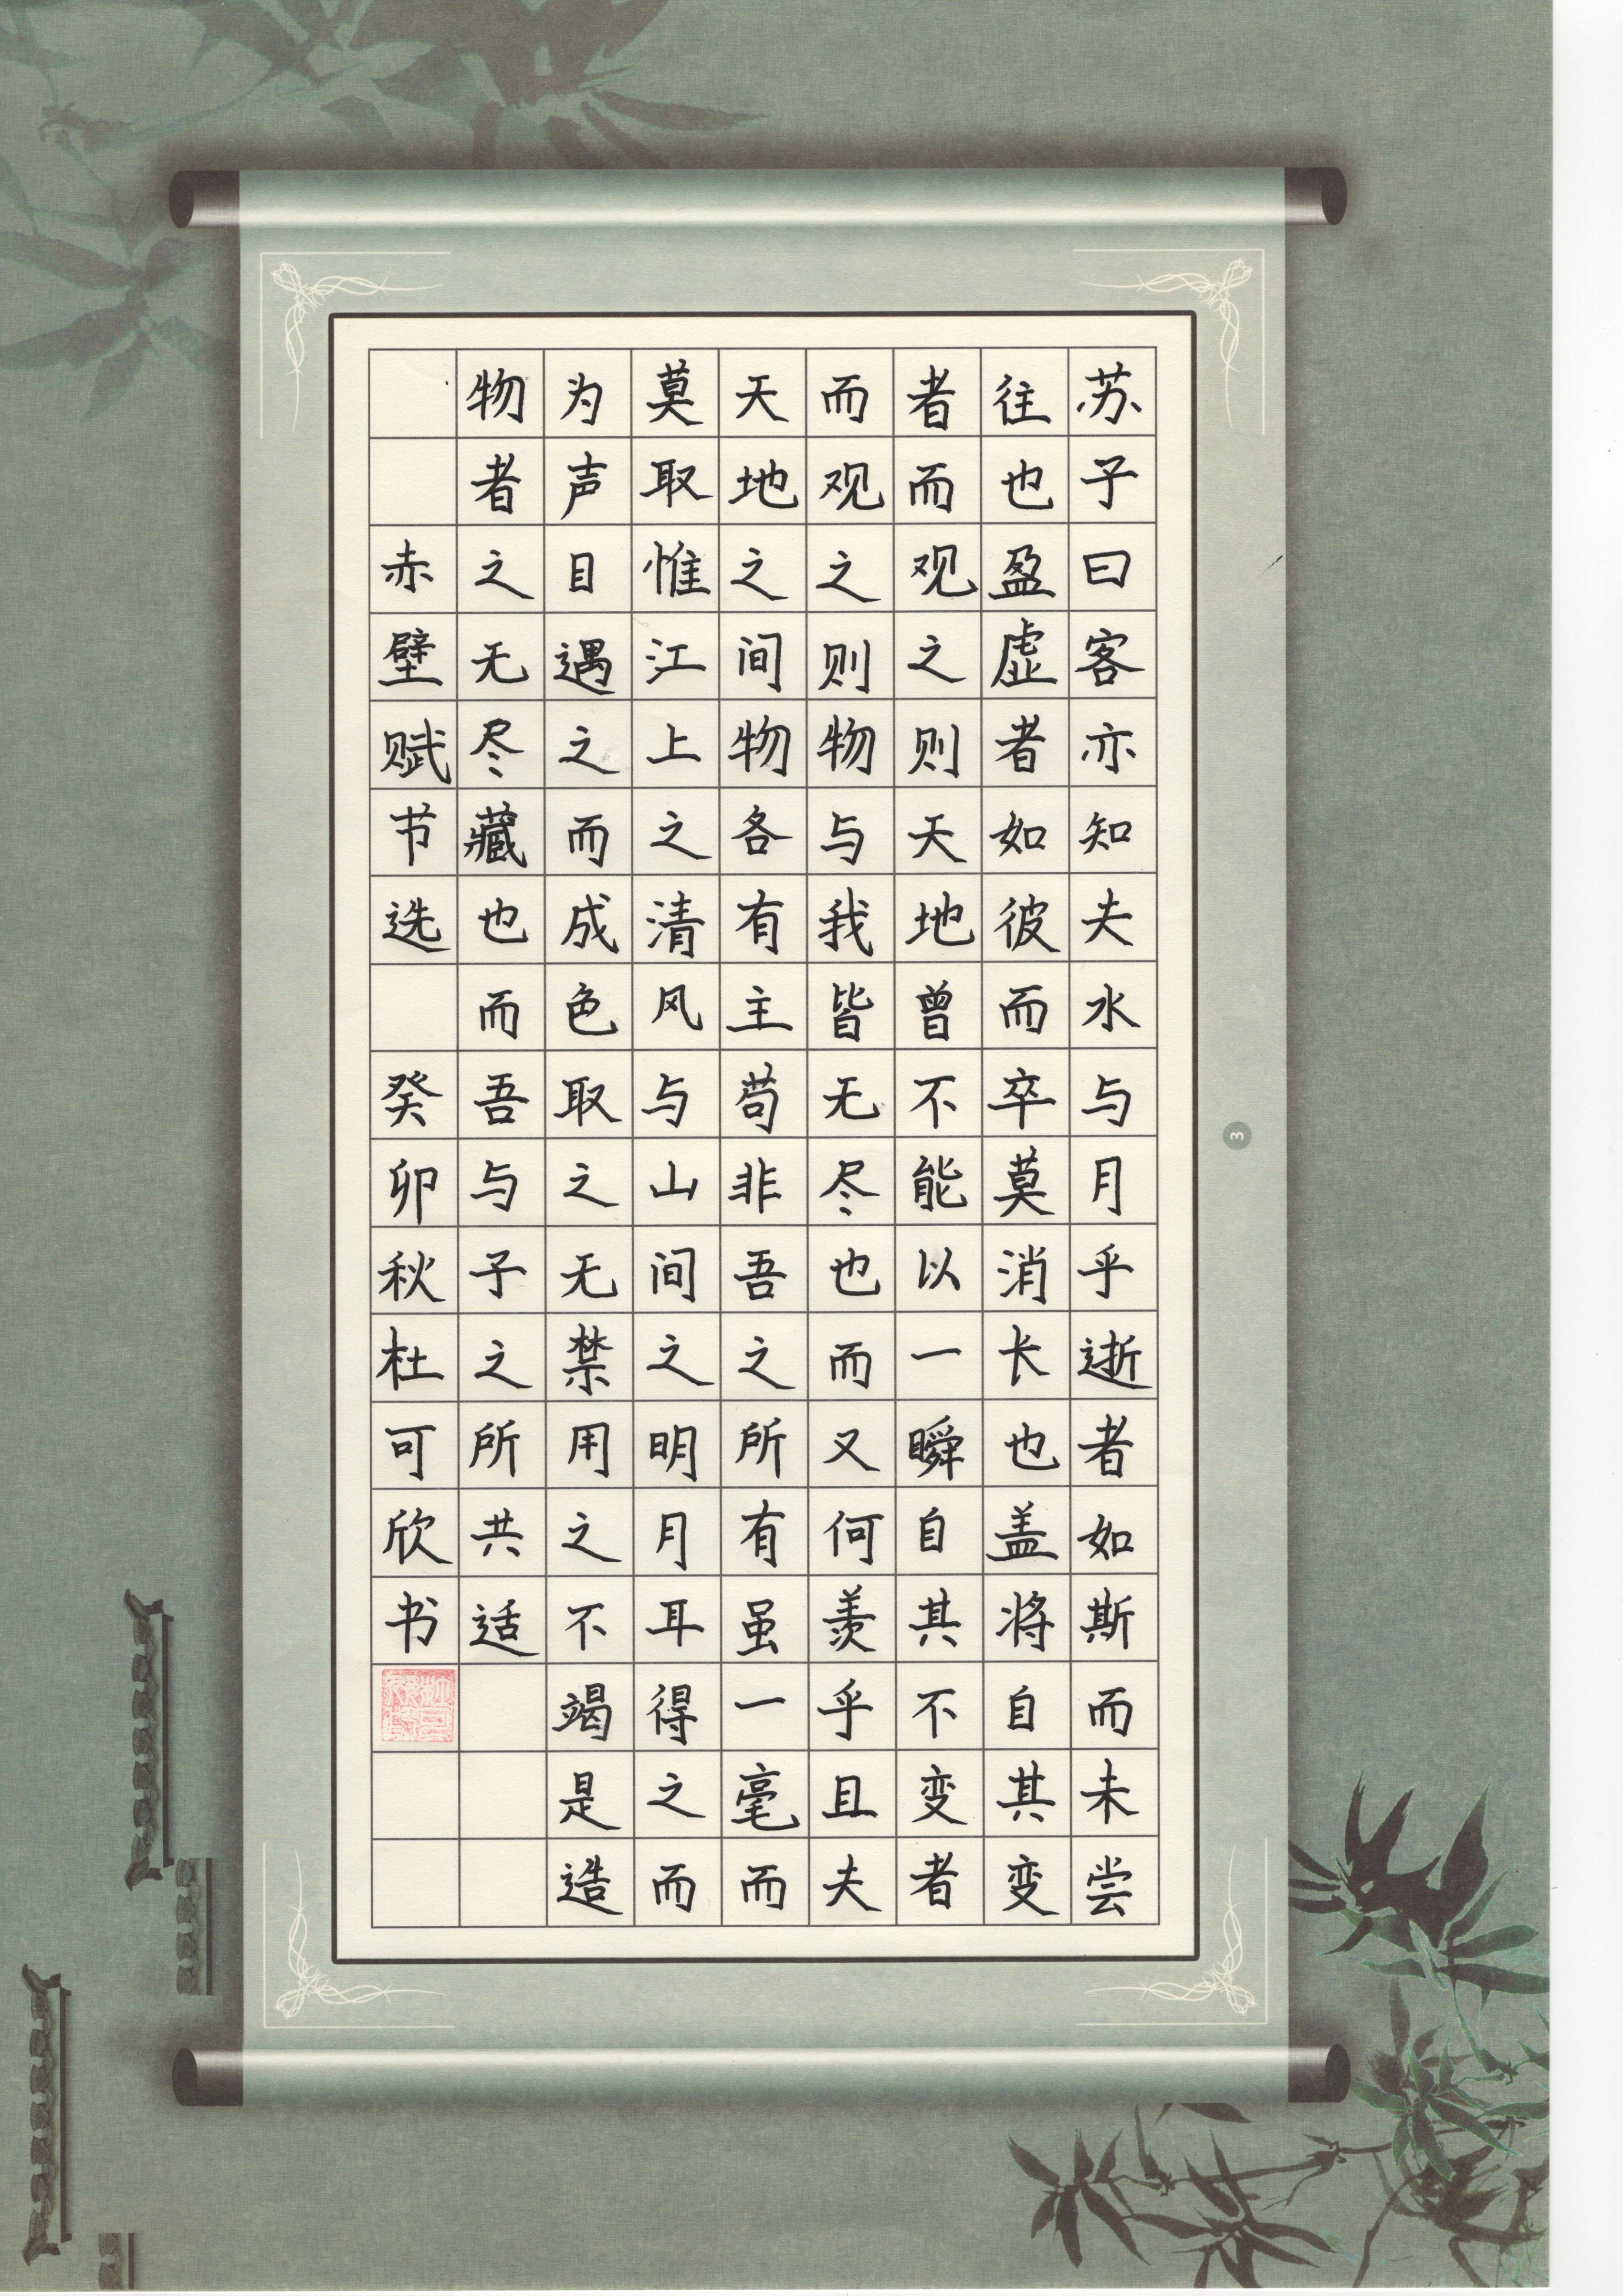 苏子曰客亦知夫水与月乎逝者如斯而未尝
往也盈虚者如彼而卒莫消长也盖将自其变
者而观之则天地曾不能以一瞬自其不变者
而观之则物物与我皆无尽也而又何羡乎且夫
天地之间物各有主苟非吾之所有虽一毫而
莫取惟江上之清风与山间之明月耳得之而
为声目遇之而成色取之无禁用之不竭是造
物者之无尽藏也而吾与子之所共适
赤壁赋节选 癸卯秋杜可欣书
3